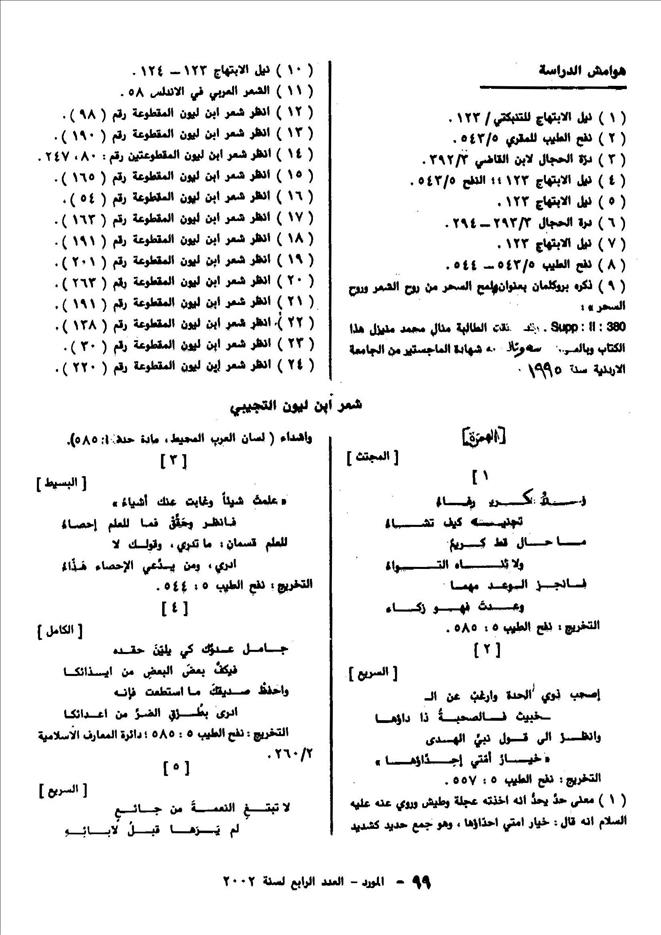 هوامش الدراسة
( ١ ) نيل الابتهاج للتنبكتي / ١٢٣ .
( ٢ ) نفح الطيب للمقري ٥٤٣/٥ .
( ٣ ) درّة الحجال لابن القاضي ٣٩٢/٣ .
( ٤ ) نيل الابتهاج ١٢٣ ؛؛ النفح ٥٤٣/٥ .
( ٥ ) نيل الابتهاج ١٢٣ .
( ٦ ) درة الحجال ٢٩٣/٣ – ٢٩٤ .
( ٧ ) نيل الابتهاج ١٢٣ .
( ٨ ) نفح الطيب ٥٤٣/٥ – ٥٤٤ .
( ٩ ) ذكره بروكلمان بعنوان لمح السحر من روح الشعر وروح
السحر » :
Supp : II : 380 . الطالبة منال محمد منيزل هذا
الكتاب شهادة الماجستير من الجامعة
الاردنية سنة ١٩٩٥ .
( ١٠ ) نيل الابتهاج ١٢٣ – ١٢٤ .
( ١١ ) الشعر العربي في الاندلس ٥٨ .
( ١٢ ) انظر شعر ابن ليون المقطوعة رقم ( ٩٨ ) .
( ١٣ ) انظر شعر ابن ليون المقطوعة رقم ( ١٩٠ ) .
( ١٤ ) انظر شعر ابن ليون المقطوعتين رقم : ٨٠ ، ٢٤٧ .
( ١٥ ) انظر شعر ابن ليون المقطوعة رقم ( ١٦٥ ) .
( ١٦ ) انظر شعر ابن ليون المقطوعة رقم ( ٥٤ ) .
( ١٧ ) انظر شعر ابن ليون المقطوعة رقم ( ١٦٣ ) .
( ١٨ ) انظر شعر ابن ليون المقطوعة رقم ( ١٩١ ) .
( ١٩ ) انظر شعر ابن ليون المقطوعة رقم ( ٢٠١ ) .
( ٢٠ ) انظر شعر ابن ليون المقطوعة رقم ( ٢٦٣ ) .
( ٢١ ) انظر شعر ابن ليون المقطوعة رقم ( ١٩١ ) .
( ٢٢ ) انظر شعر ابن ليون المقطوعة رقم ( ١٣٨ ) .
( ٢٣ ) انظر شعر ابن ليون المقطوعة رقم ( ٣٠ ) .
( ٢٤ ) انظر شعر ابن ليون المقطوعة رقم ( ٢٢٠ ) .
شعر ابن ليون التجيبي
[الهمزة]
[ المجتث ]
[ ١
كريم رفاءُ
تجنيه كيف تشاءُ
ما حال قط كريمٌ
ولا ثناه التواءُ
فانجز الوعد مهما
وعدتَ فهو زكاء
التخريج : نفح الطيب ٥ : ٥٨٥ .
[ ٢ ]
[ السريع ]
إصحب ذوي الحدة وارغبْ عن الـ
ـخبيث فالصحبةُ ذا داؤها
وانظرْ الى قول نبيّ الهدى
« خيارُ أمّتي إحدّاؤها »
التخريج : نفح الطيب ٥ : ٥٥٧ .
( ١ ) معنى حدّ يحدُّ انه اخذته عجلة وطيش وروي عنه عليه
السلام انه قال : خيار امتي احداؤها ، وهو جمع حديد كشديد
واشداء ( لسان العرب المحيط ، مادة حدد ١ : ٥٨٥ ) .
[ ٣ ]
[ البسيط ]
« علمتَ شيئاً وغابت عنك أشياءُ »
فانظر وحَقّقْ فما للعلم إحصاءُ
للعلم قسمان : ما تدري ، وقولك لا
ادري ، ومن يدّعي الإحصاء هَذّاءُ
التخريج : نفح الطيب ٥ : ٥٤٤ .
[ ٤ ]
[ الكامل ]
جامل عدوّك كي يليّنَ حقده
فيكفَّ بعضَ البعضِ من ايذائكا
واحفظْ صديقكَ ما استطعت فإنه
ادرى بطُرْقِ الضرّ من اعدائكا
التخريج : نفح الطيب ٥ : ٥٨٥ ؛ دائرة المعارف الاسلامية
٢٦٠/٢ .
[ ٥ ]
[ السريع ]
لا تبتغِ النعمةَ من جائعٍ
لم يَرَها قبلُ لآبائِهِ
٩٩ – المورد – العدد الرابع لسنة ٢٠٠٢